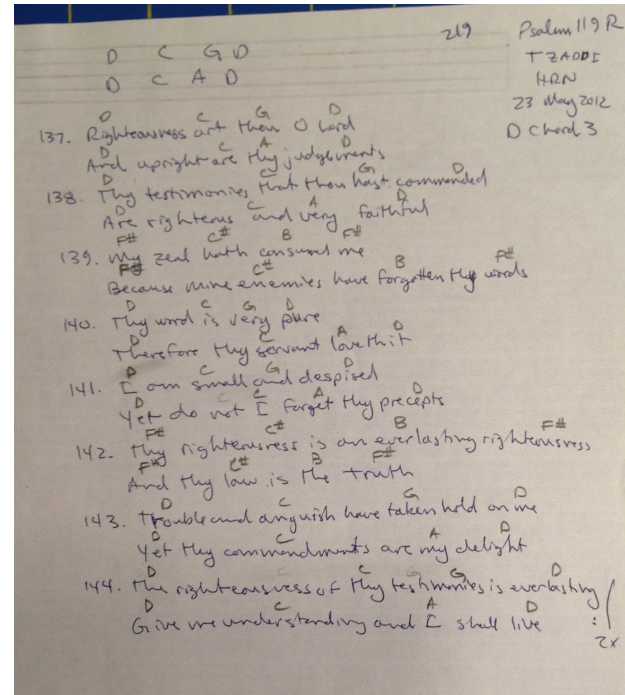 219
Psalm 119 R
TZADDI
HRN
23 May 2012
D Chord 3
D C G D
D C A D
D C G D
137. Righteousness art thou O Lord
D C A D
And upright are thy judgements
D C G D
138. Thy testimonies that thou hast commended
D C A D
Are righteous and very faithful
F# C# B F#
139. My zeal hath consumed me
F# C# B F#
Because mine enemies have forgotten thy words
D C G D
140. Thy word is very pure
D C A D
Therefore thy servant loveth it
D C G D
141. I am small and despised
D C A D
Yet do not I forget thy precepts
F# C# B F#
142. Thy righteousness is an everlasting righteousness
F# C# B F#
And thy law is the truth
D C G D
143. Trouble and anguish have taken hold on me
D C A D
Yet thy commendments are my delight
D C G D
144. The righteousness of thy testimonies is everlasting
D C A D
Give me understanding and I shall live :
2x